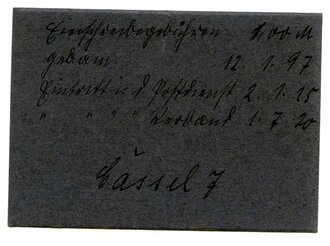 Einschreibegebühren 1.00 M
geb. am 12. 1. 97
Eintritt i. d. Postdienst 2. 1. 15
" " " " Verband 1. 7. 20
Cassel 7